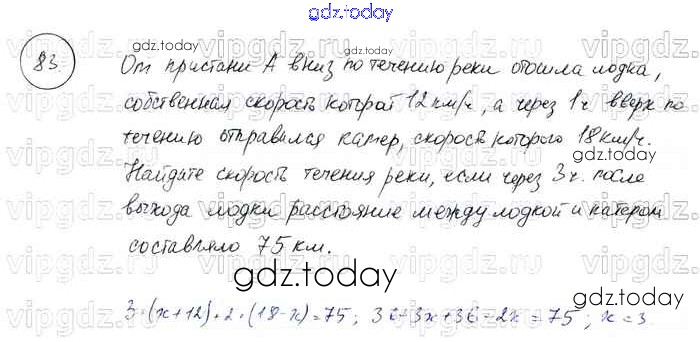 gdz.today
83.
От пристани А вниз по течению реки отошла лодка,
собственная скорость которой 12 км/ч, а через 1 ч вверх по
течению отправился катер, скорость которого 18 км/ч.
Найдите скорость течения реки, если через 3 ч. после
выхода лодки расстояние между лодкой и катером
составляло 75 км.
gdz.today
3·(x+12)+2·(18-x)=75; 36+3x+36-2x=75; x=3.